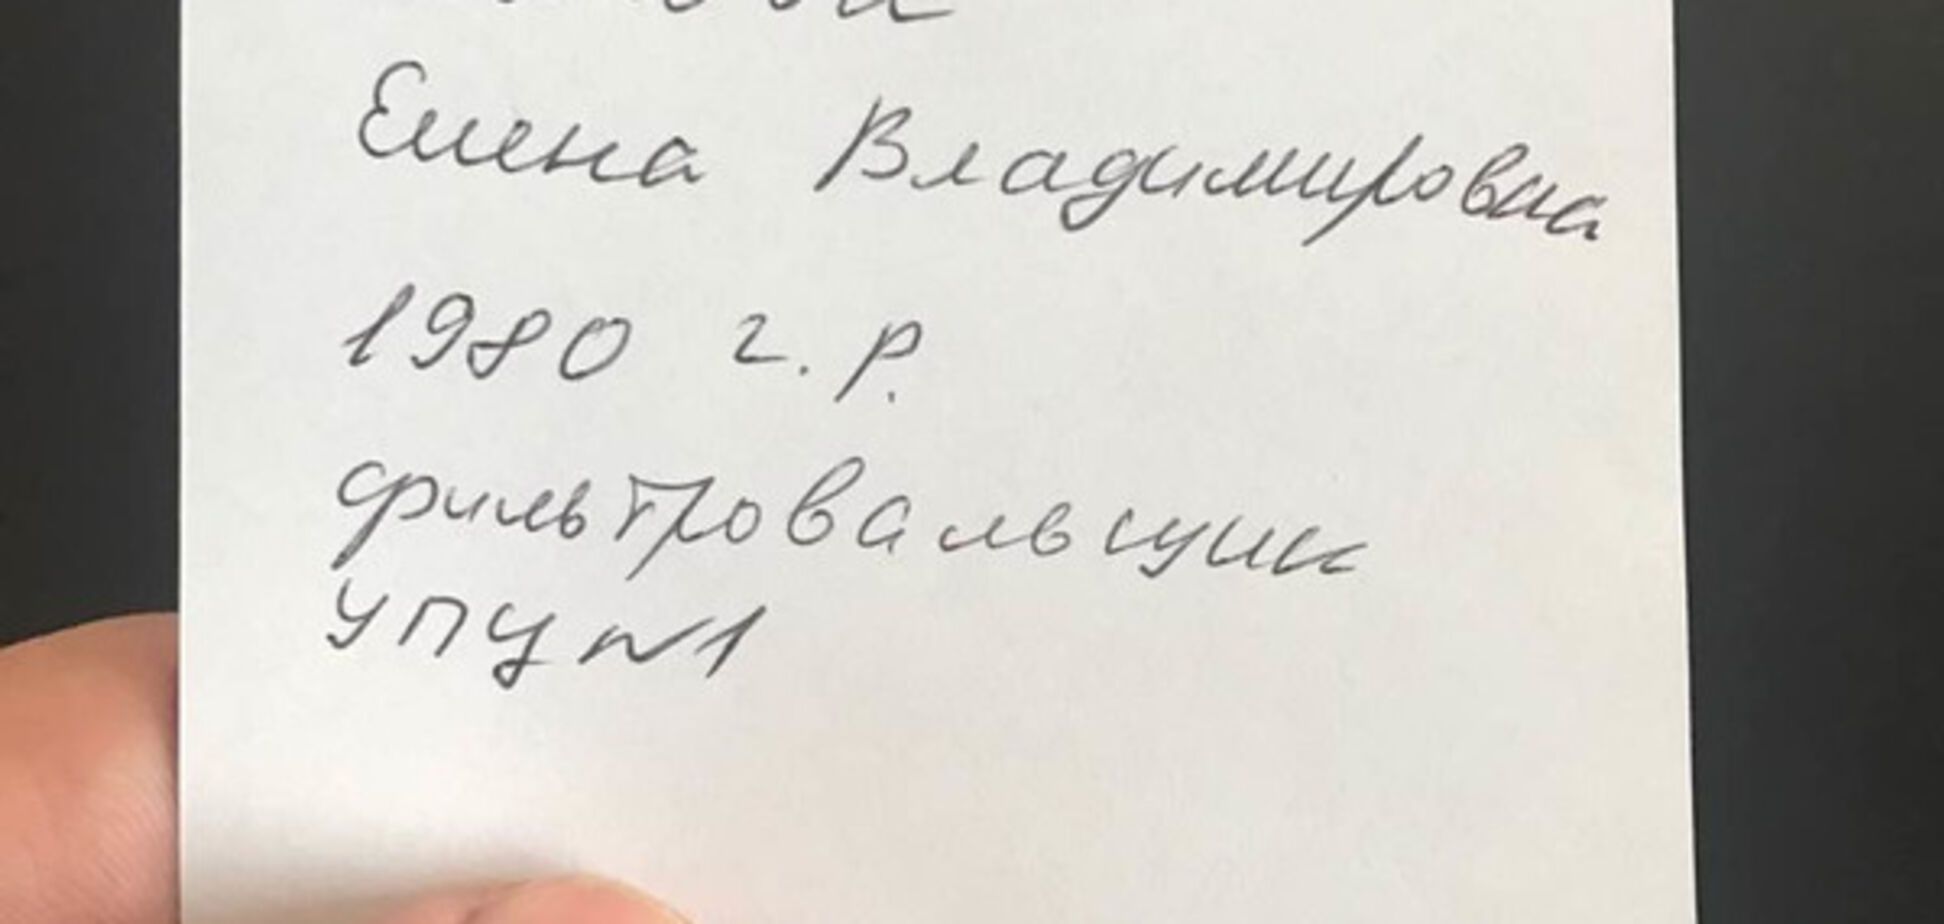 Елена Владимировна
1980 г.р.
фильтровальщик
УПЦ №1